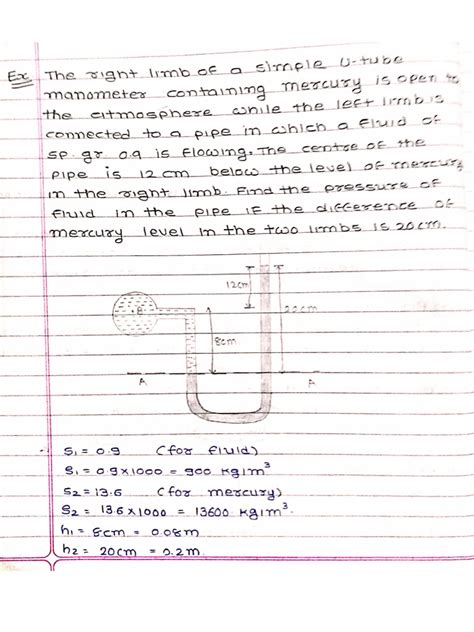 Ex The right limb of a simple U-tube
manometer containing mercury is open to
the atmosphere while the left limb is
connected to a pipe in which a fluid of
sp. gr 0.9 is flowing. The centre of the
pipe is 12 cm below the level of mercury
in the right limb. Find the pressure of
fluid in the pipe if the difference of
mercury level in the two limbs is 20 cm.
12cm
20cm
8cm
A A
S1 = 0.9 (for fluid)
S1 = 0.9 x 1000 = 900 kg/m3
S2 = 13.6 (for mercury)
S2 = 13.6 x 1000 = 13600 kg/m3.
h1 = 8cm = 0.08m
h2 = 20cm = 0.2m